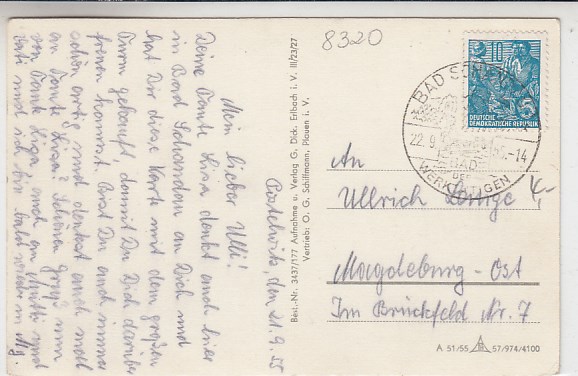 8320
Postelwitz, den 21.9.55
Mein lieber Ulli!
Deine Tante Lisa denkt auch hier
in Bad Schandau an Dich und
hat Dir diese Karte mit dem großen
Turm gekauft, damit Du Dich darüber
freuen kannst. Bist Du auch immer
schön artig und denkst auch mal
an Tante Lisa? Schönen Gruß nun
von Tante Lisa auch an Mutti und
Vati und ich bin bald wieder in Mg.
Best.-Nr. 3437/177 Aufnahme u. Verlag G. Dick, Erlbach i. V. III/23/27
Vertrieb: O. G. Schiffmann, Plauen i. V.
10
5
DEUTSCHE
DEMOKRATISCHE REPUBLIK
BAD
22.9.
-14
BAD
DER
WERKTÄTIGEN
4,-
An
Ullrich
Magdeburg-Ost
Im Brückfeld Nr. 7
A 51/55 57/974/4100